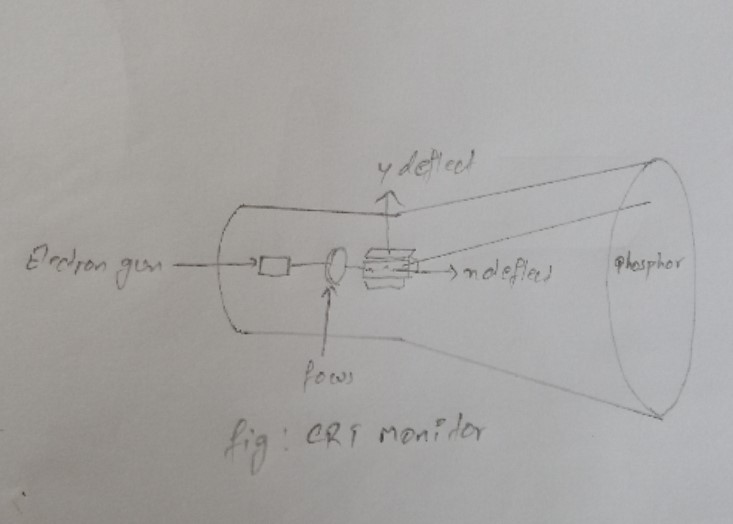 y deflect
Electron gun
x deflect
phosphor
focus
fig: CRT monitor